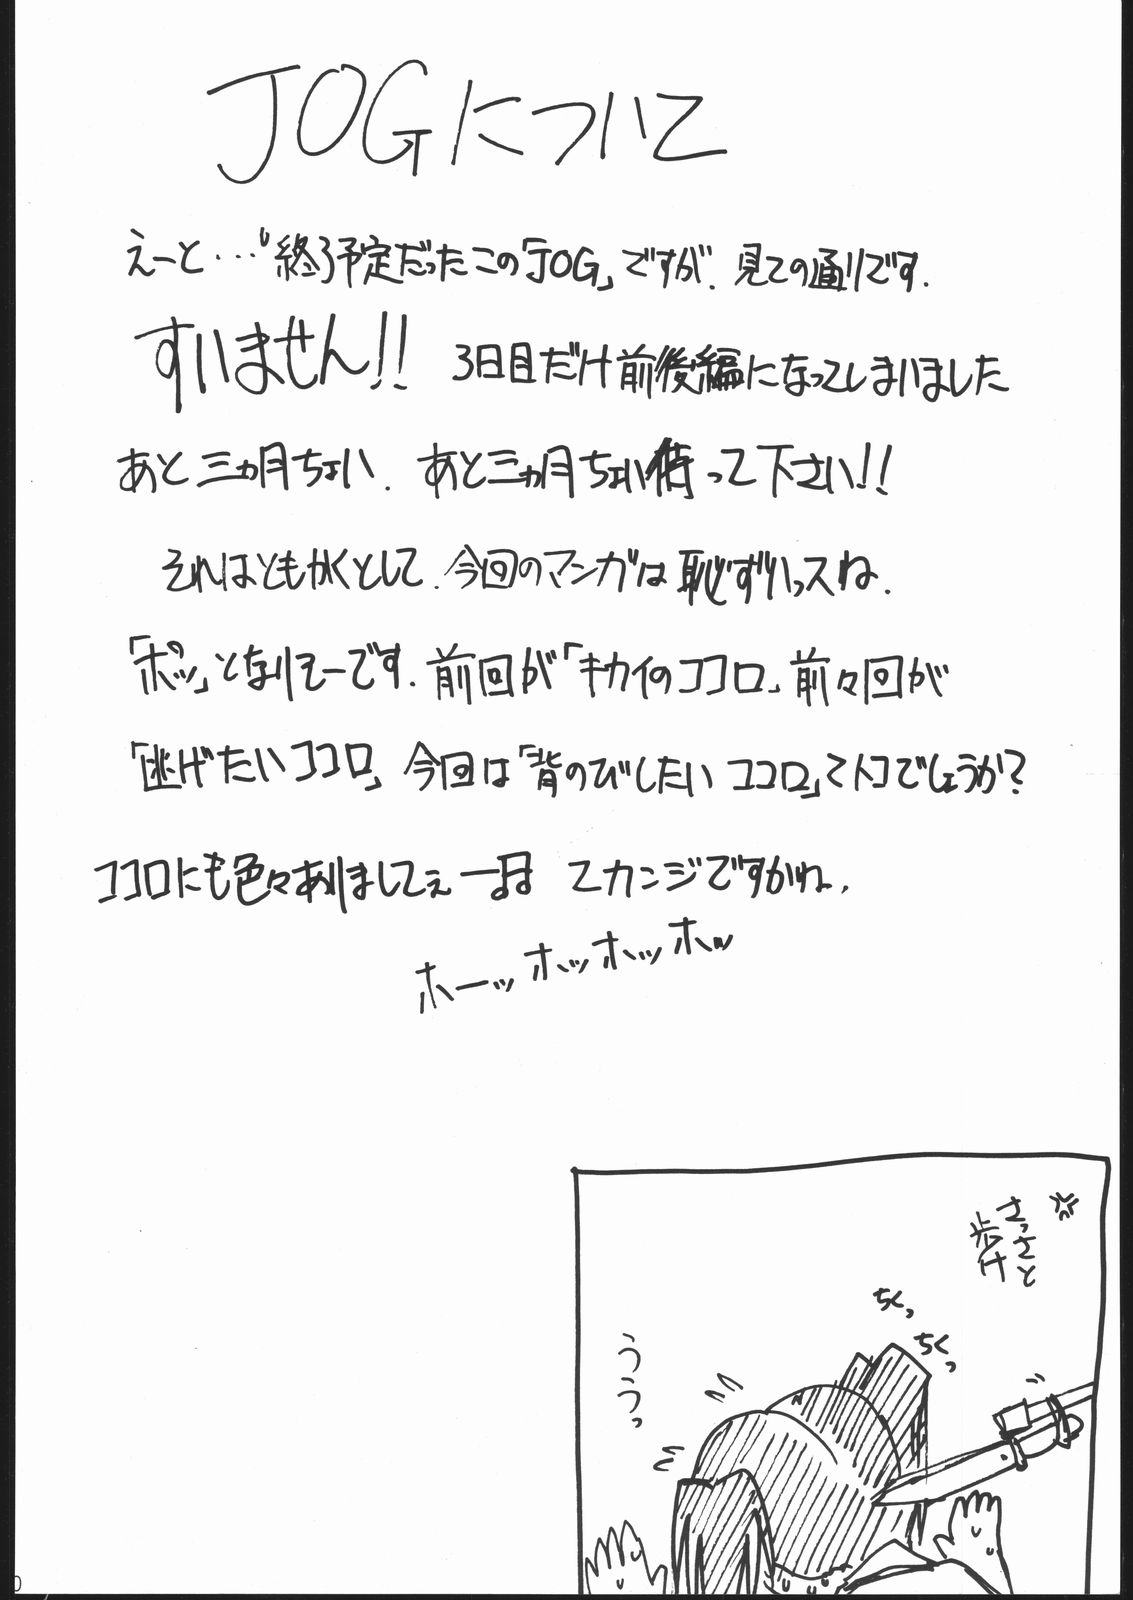 JOGについて
えーと…終了予定だったこの「JOG」ですが、見ての通りです.
すいません!! 3日目だけ前後編になってしまいました
あと三ヵ月ちょい. あと三ヵ月ちょい待って下さい!!
それはともかくとして. 今回のマンガは恥ずいっスね.
「ポッ」となりそーです. 前回が「キカイのココロ」前々回が
「逃げたいココロ」今回は「背のびしたいココロ」てトコでしょうか?
ココロにも色々ありましてぇ てカンジですかね.
ホーッホッホッホッ
さっさと
歩け
ちくっ
ちくっ
ううっ